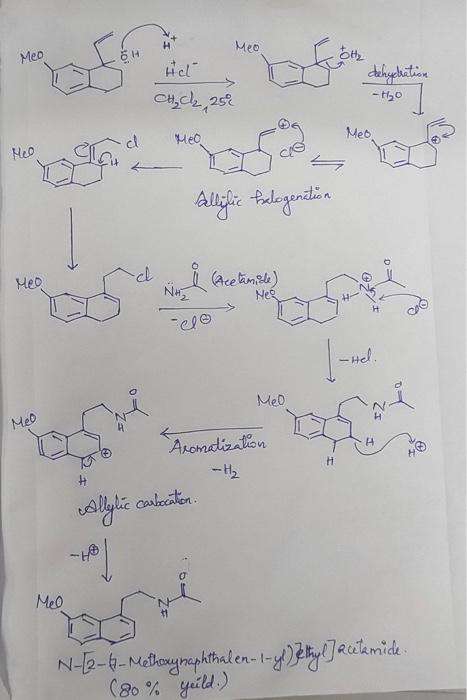 MeO
ÖH
H+
H+Cl-
CH2Cl2, 25°C
MeO
+OH2
dehydration
-H2O
MeO
Cl
H
MeO
⊕
Cl⊖
MeO
⊕
Allylic halogenation
MeO
Cl
N̈H2
O
(Acetamide)
-Cl⊖
MeO
H-N⊕
H
O
Cl⊖
-HCl.
MeO
N
H
O
⊕
H
Aromatization
-H2
MeO
N
H
O
H
H
H⊕
Allylic carbocation.
-H⊕
MeO
N
H
O
N-[2-(7-Methoxynaphthalen-1-yl)ethyl]acetamide.
(80% yeild.)